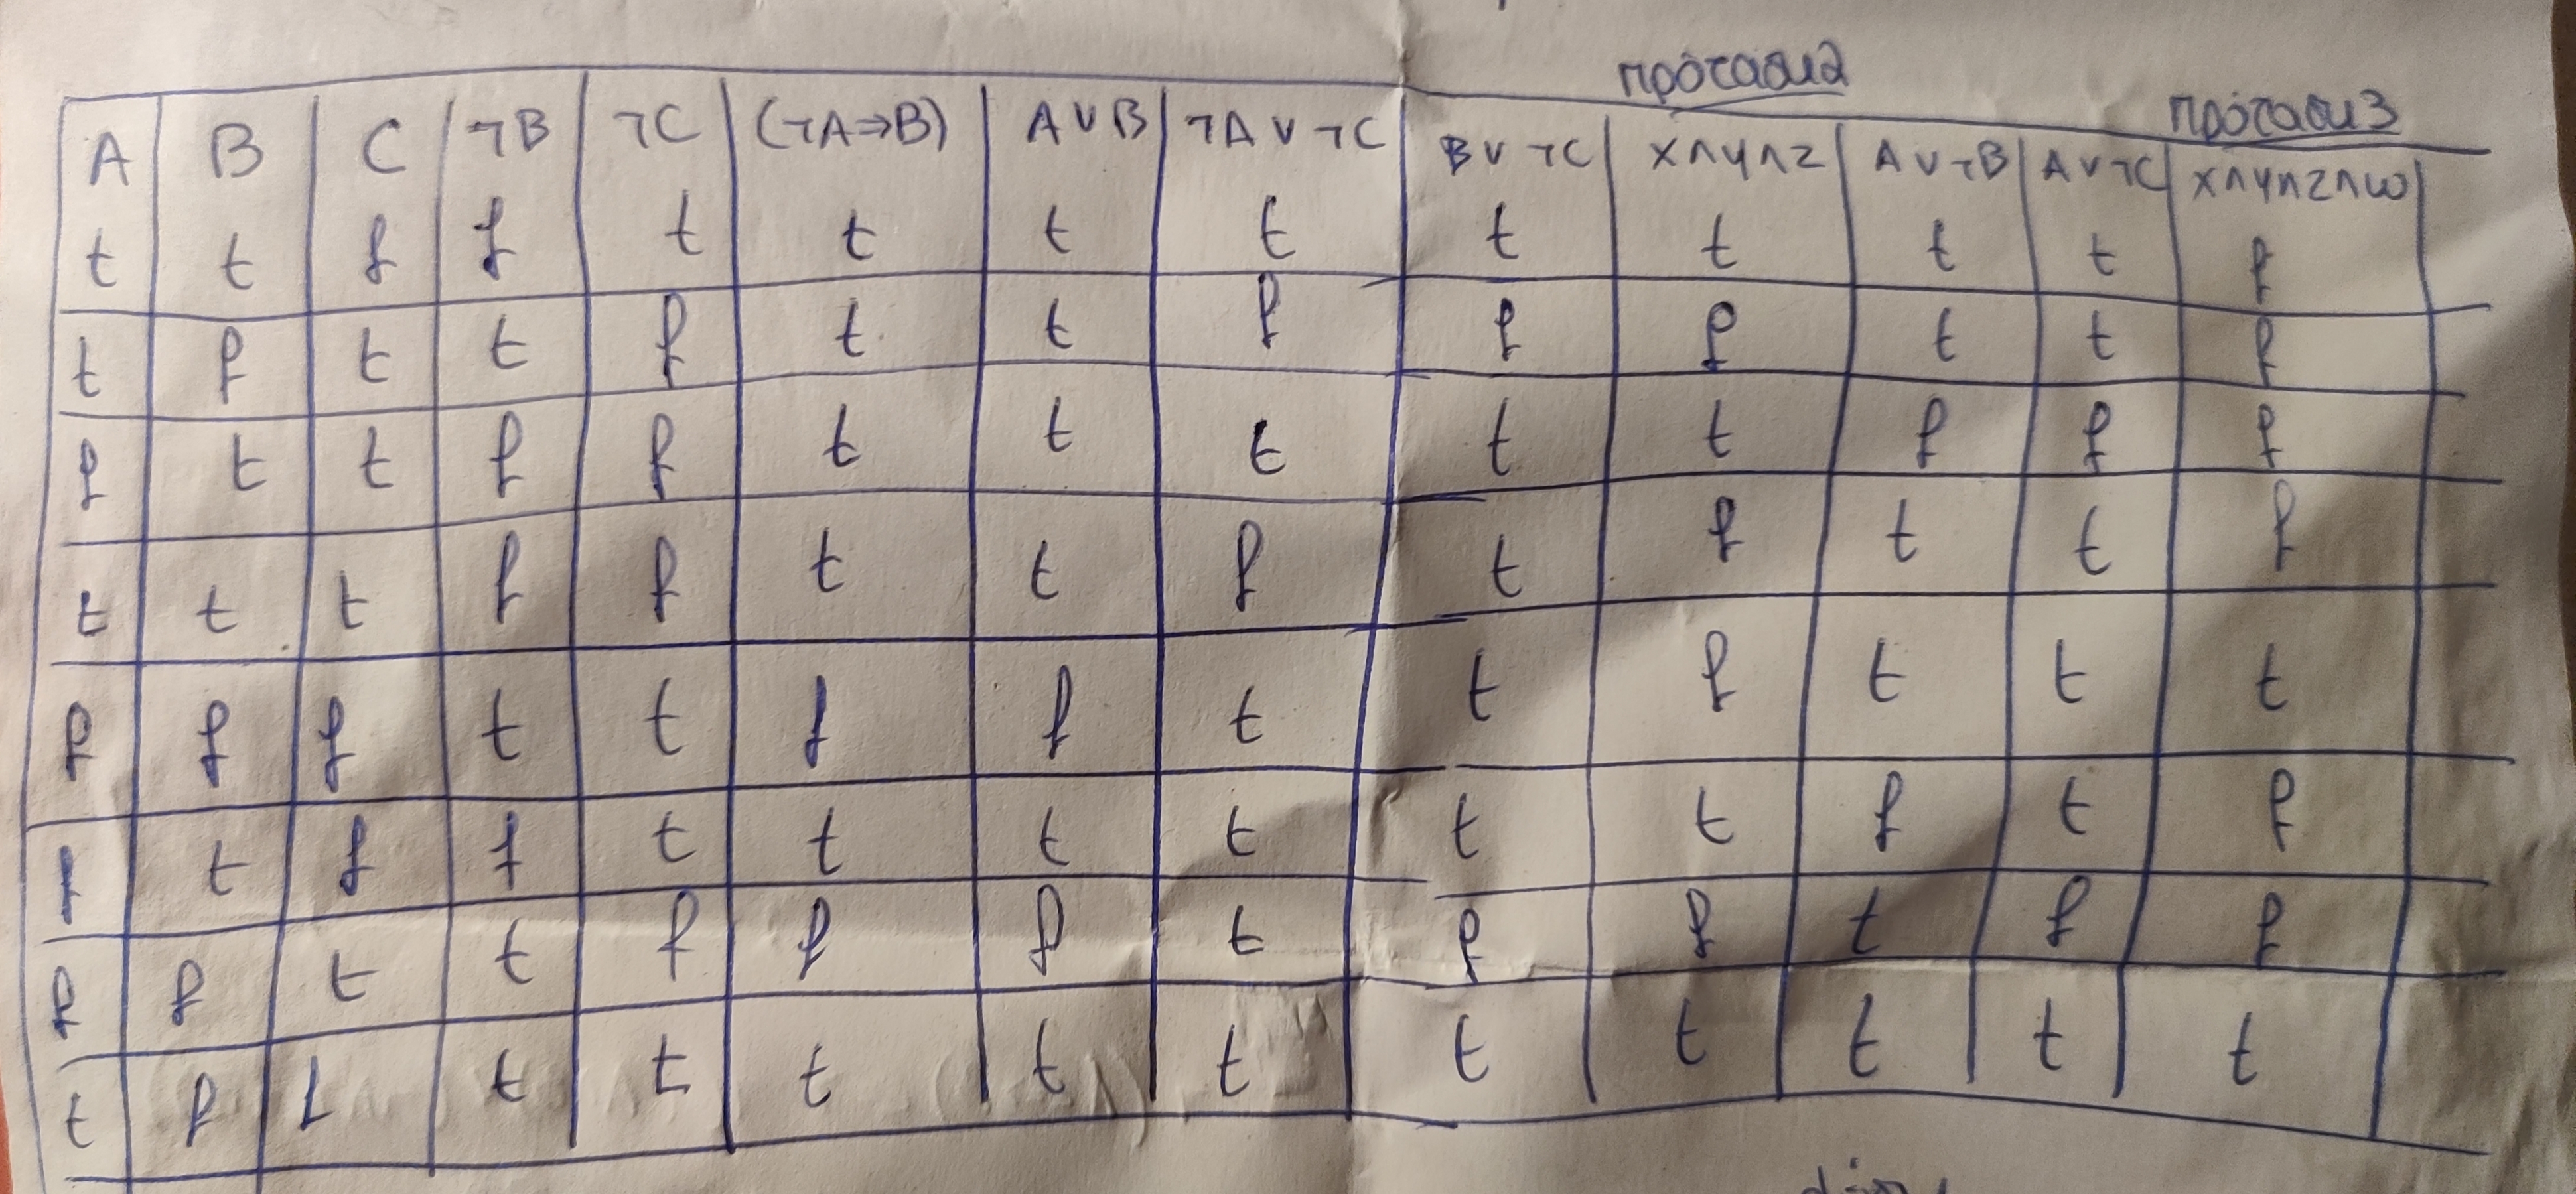 προταση2
προταση3
A B C ¬B ¬C (¬A⇒B) A∨B ¬A∨¬C B∨¬C x∧y∧z A∨¬B A∨¬C x∧y∧z∧w
t t f f t t t t t t t t f
t f t t f t t f f f t t f
f t t f f t t t t t f f f
t t t f f t t f t f t t f
f f f t t f f t t f t t t
t f f t t t t t t f t f
f f t t f f f t f f t f f
t f t t t t t t t t t t